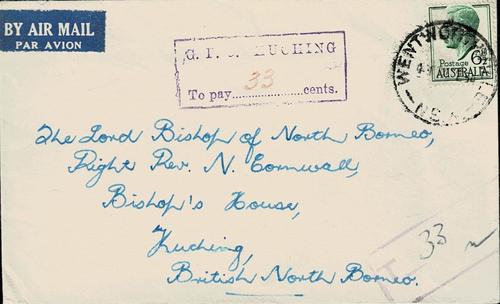 BY AIR MAIL
PAR AVION
G.P.O. KUCHING
To pay 33 cents.
6½
Postage
AUSTRALIA
WENTWORTH
N.S.W
The Lord Bishop of North Borneo,
Right Rev. N. Cornwall,
Bishop's House,
Kuching,
British North Borneo.
33
T